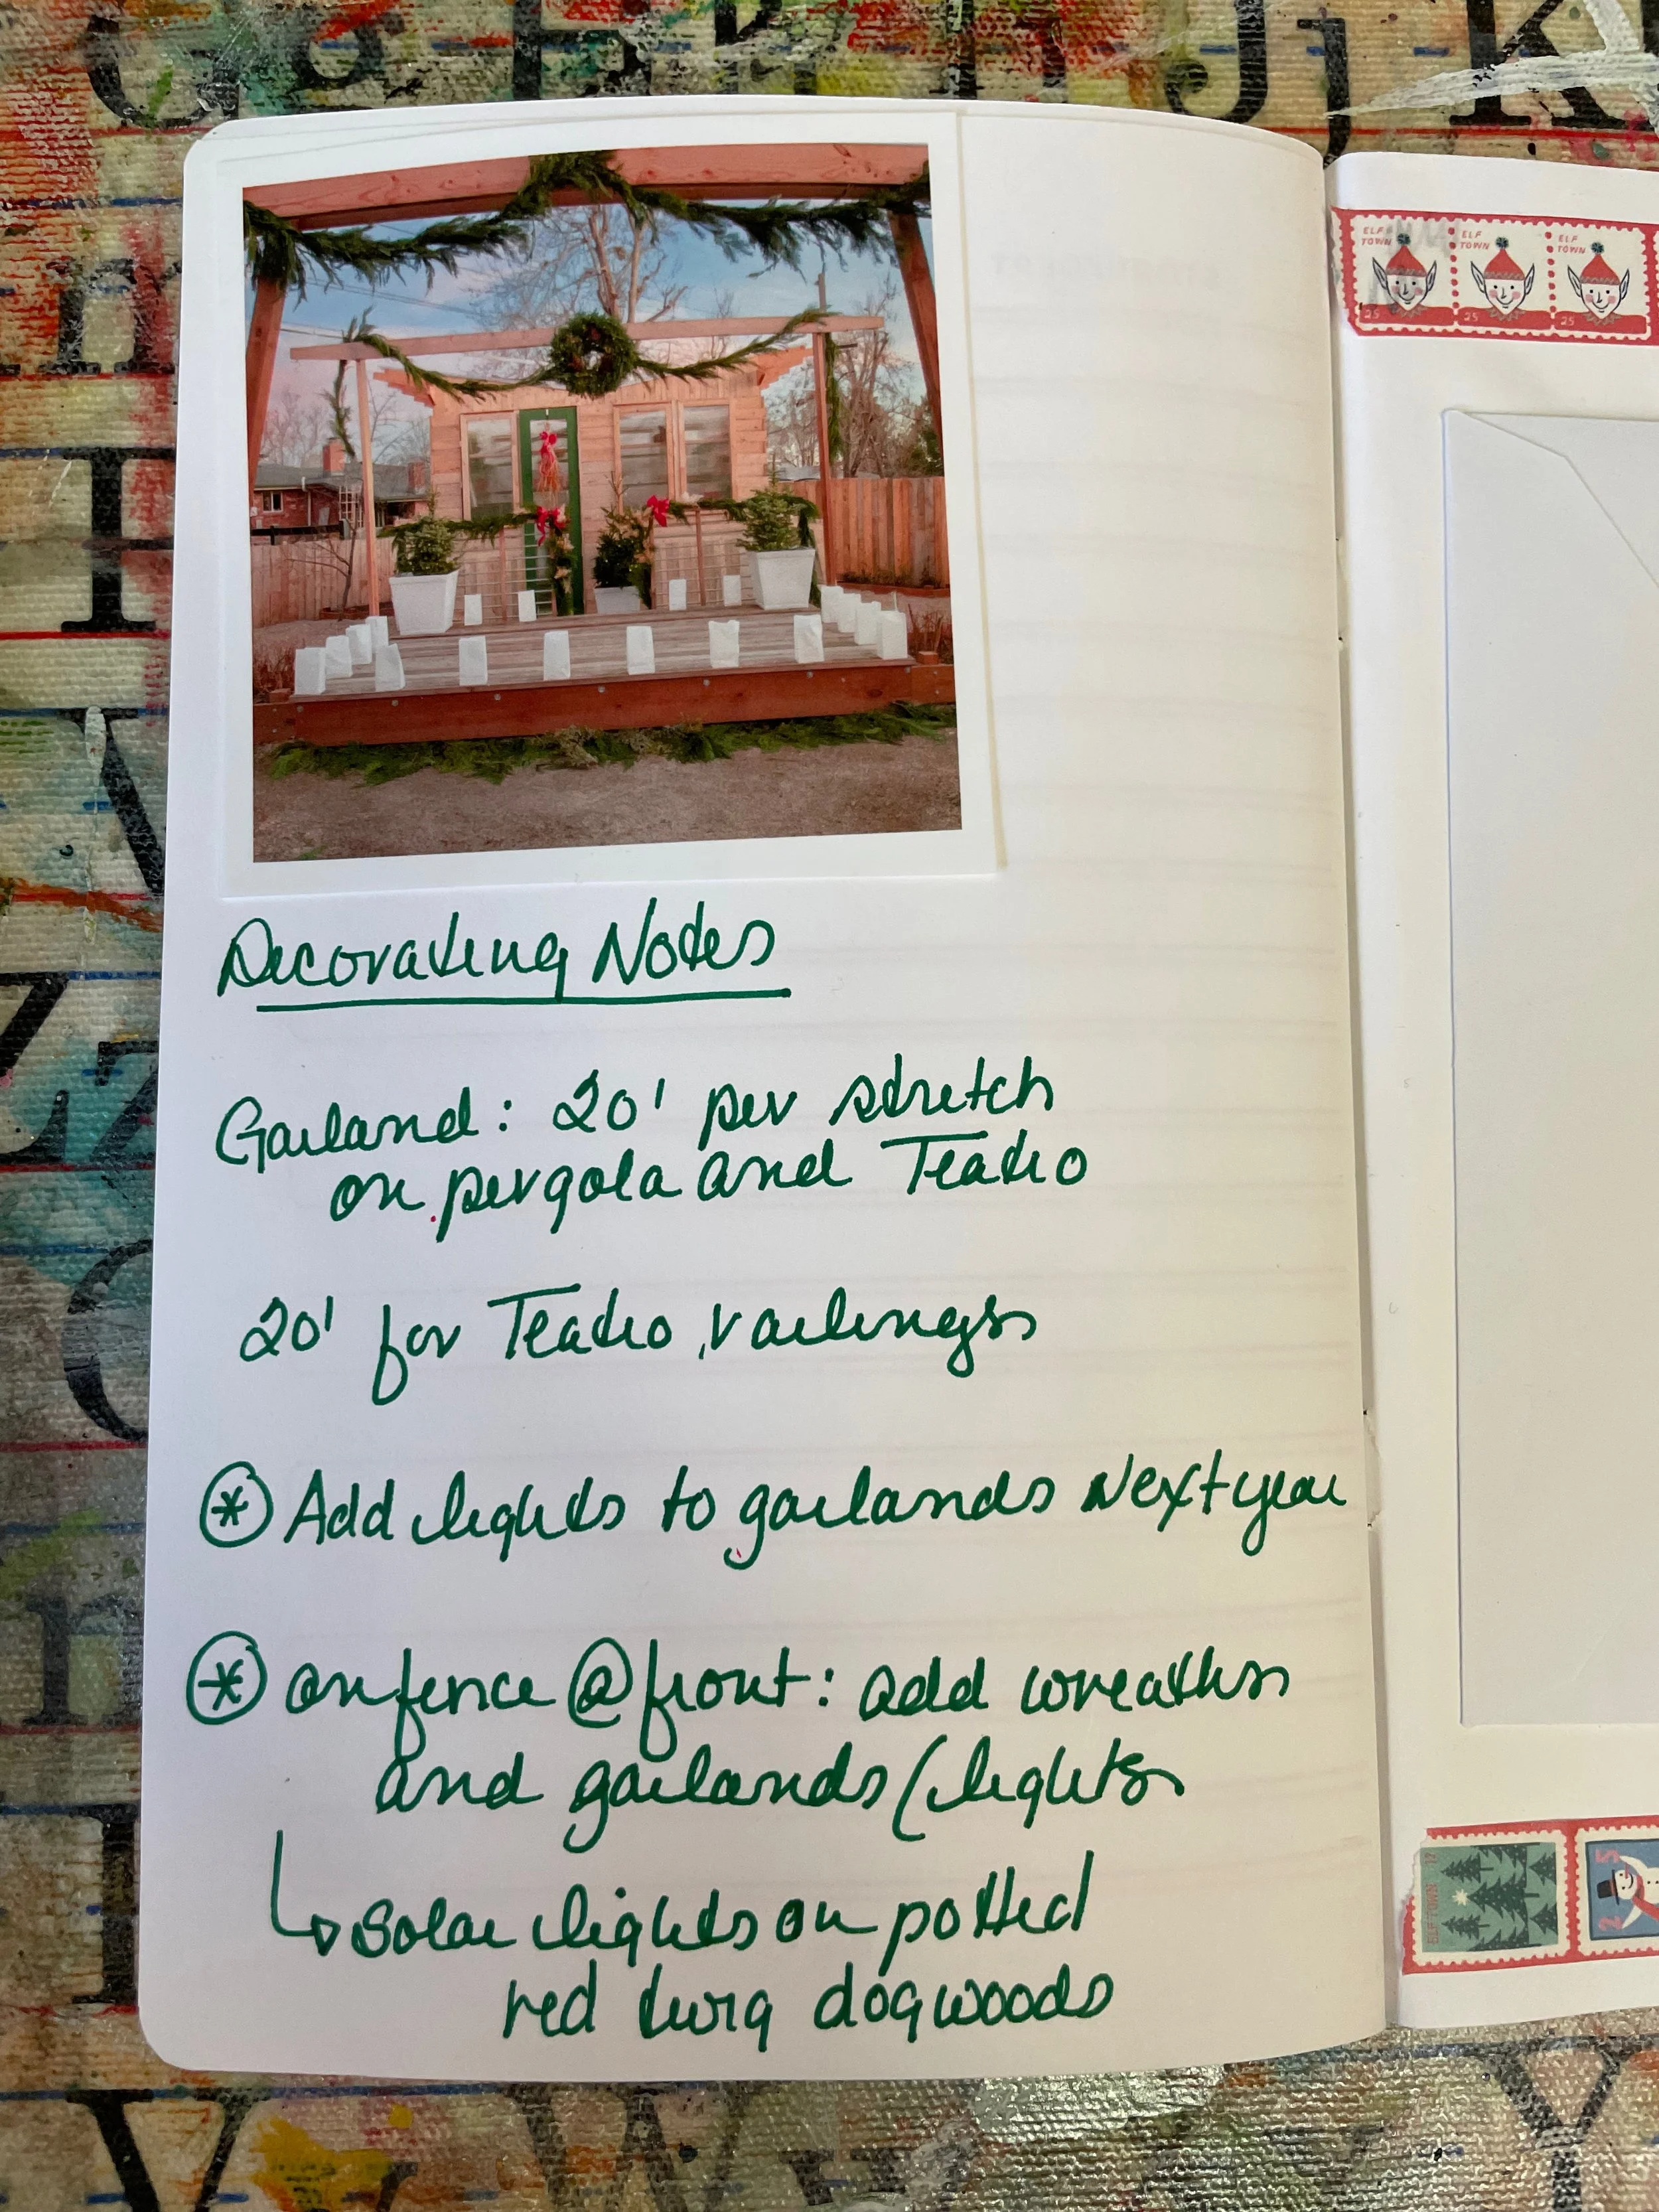 ELF TOWN ELF TOWN ELF TOWN
25 25 25
Decorating Notes
Garland: 20' per stretch
on pergola and Teatro
20' for Teatro railings
* Add lights to garlands Next year
* on fence @ front: add wreaths
and garlands (lights
↳ solar lights on potted
red twig dogwoods
ELF TOWN